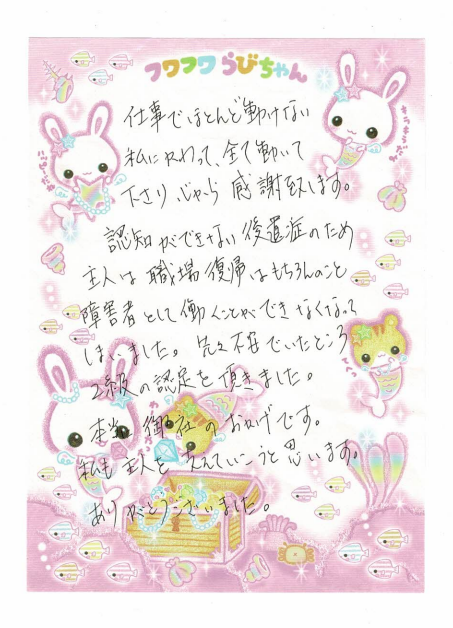 フワフワ らびちゃん
仕事でほとんど動けない
私に代わって、全て動いて
下さり 心から 感謝致します。
認知ができない後遺症のため
主人は 職場復帰はもちろんのこと
障害者として働くことができなくなって
しまいました。先々不安でいたところ
2級の認定を頂きました。
本当、御社のおかげです。
私も 主人を支えていこうと思います。
ありがとうございました。